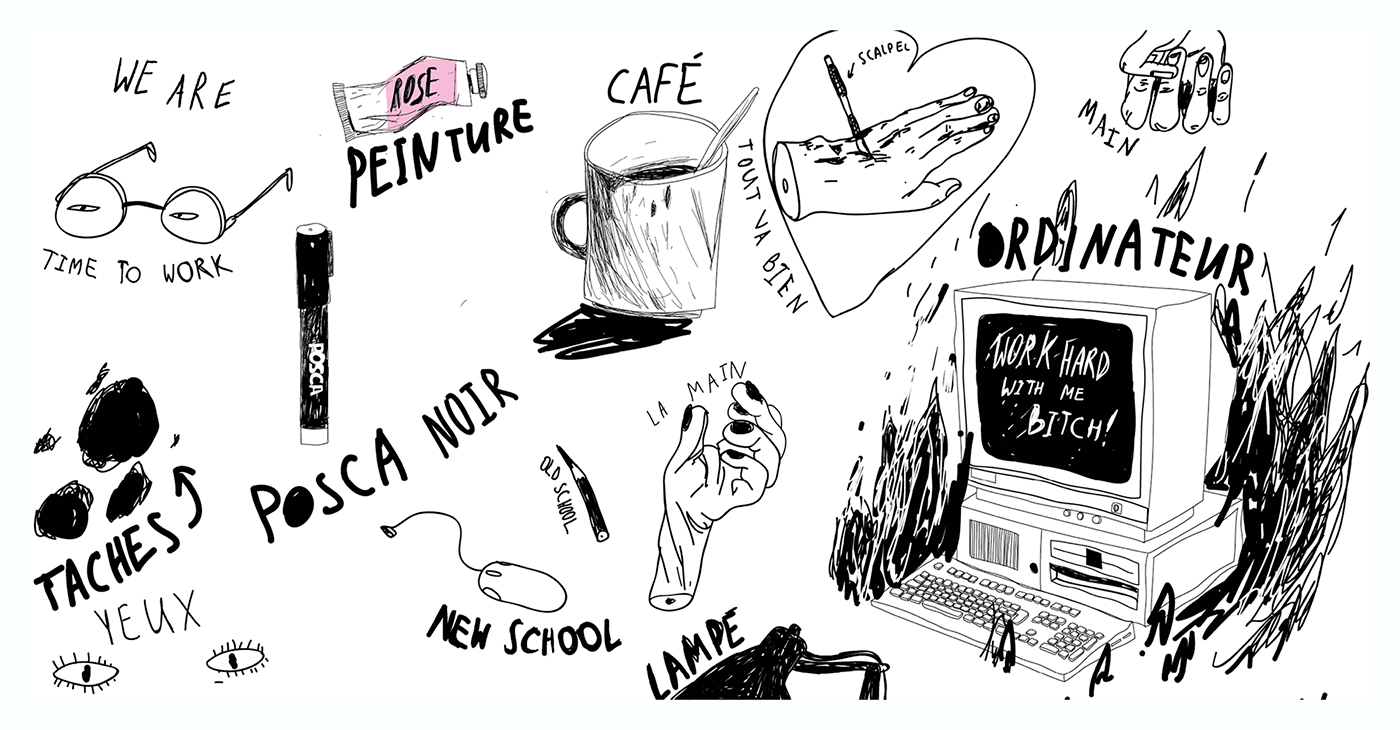 WE ARE
TIME TO WORK
ROSE
PEINTURE
CAFÉ
TOUT VA BIEN
SCALPEL
MAIN
ORDINATEUR
WORK HARD
WITH ME
BITCH!
POSCA
POSCA NOIR
LA MAIN
OLD SCHOOL
NEW SCHOOL
TACHES
YEUX
LAMPE